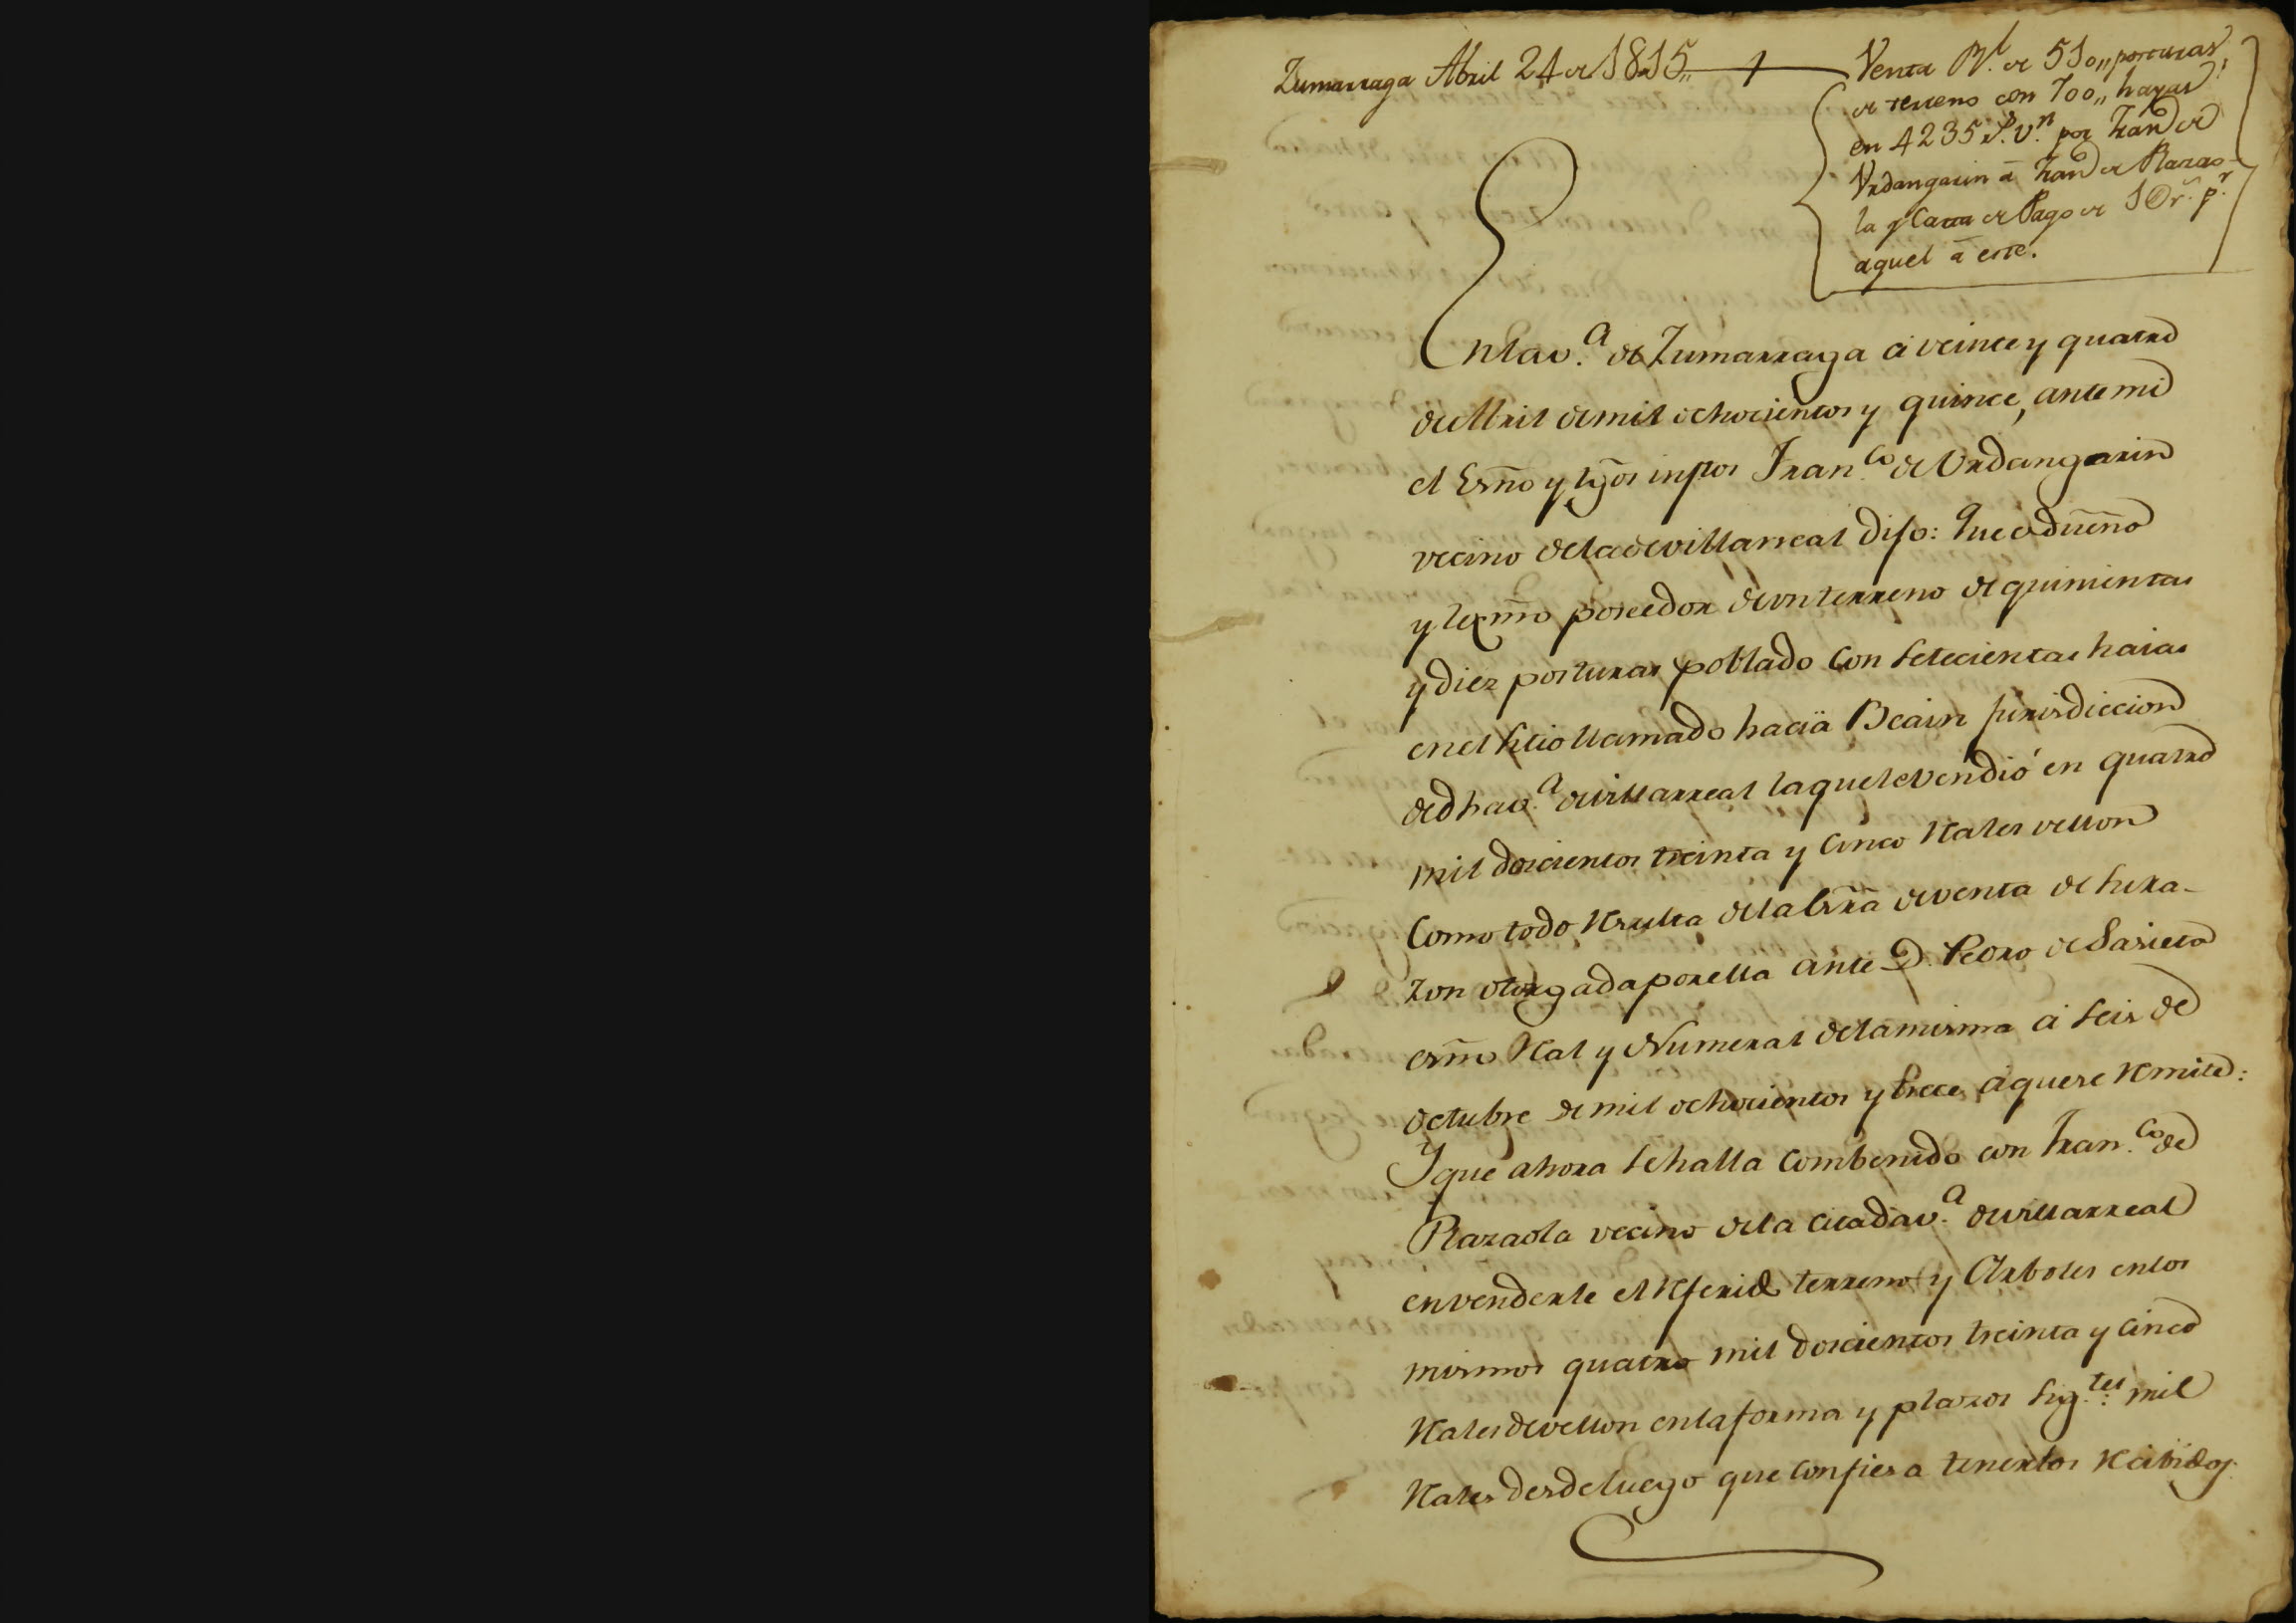 Zumarraga Abril 24 de 1815,, 1
Venta Rl. de 510,, posturas
de terreno con 700,, hayas
en 4235 rs. vn. por Fran.co de
Vrdangarin á Fran.co de Plazao-
la y Carta de Pago de por
aquel á este.
En la v.a de Zumarraga á veinte y quatro
de Abril de mil ochocientos y quince, ante mi
el Esño y tgõs inftos Fran.co de Urdangarin
vecino de la de villarreal dijo: Que es dueño
y lexmõ poseedor de un terreno de quinientas
y diez posturas poblado con setecientas haias
en el sitio llamado hacia Beain jurisdiccion
de dha v.a de villarreal la que le vendió en quatro
mil doscientos treinta y cinco Rales vellon
como todo Resulta de la esrã de venta de su ra-
zon otorgada por ella ante D. Pedro de Sarieta
esñõ Ral y Numeral de la misma á seis de
octubre de mil ochocientos y trece á que se Remite:
Y que ahora se halla combenido con Fran.co de
Plazaola vecino de la citada v.a de villarreal
en venderle el Referido terreno y Arboles en los
mismos quatro mil doscientos treinta y cinco
Rales de vellon en la forma y plazos sig.tes: mil
Rales desde luego que confiesa tenerlos Recibidos